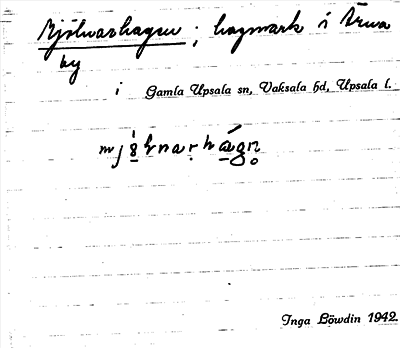 Mjölnarhagen ; hagmark i Ärna
by
i Gamla Upsala sn, Vaksala hd, Upsala l.
Inga Löwdin 1942.